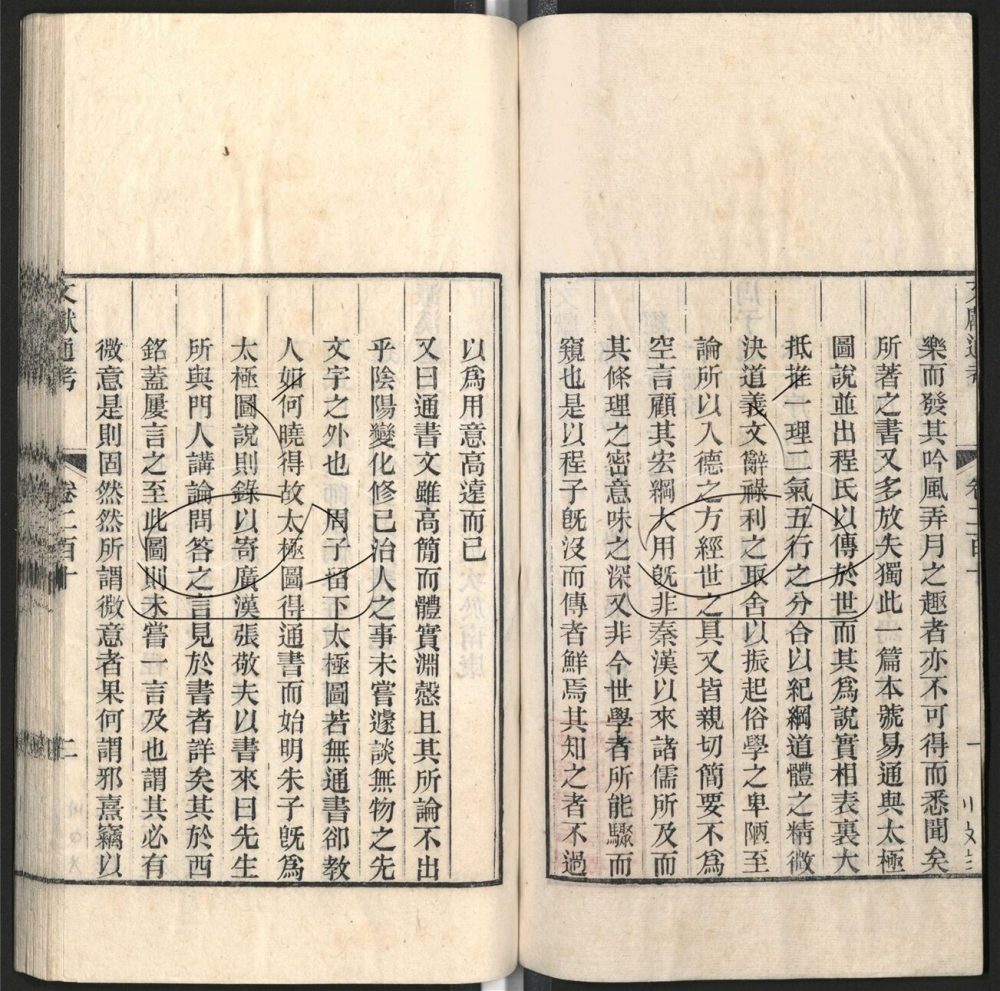 樂而發其吟風弄月之趣者亦不可得而悉聞矣
所著之書又多放失獨此一篇本號易通與太極
圖說並出程氏以傳於世而其爲說實相表裏大
抵推一理二氣五行之分合以紀綱道體之精微
決道義文辭祿利之取舍以振起俗學之卑陋至
論所以入德之方經世之具又皆親切簡要不爲
空言顧其宏綱大用旣非秦漢以來諸儒所及而
其條理之密意味之深又非今世學者所能驟而
窺也是以程子旣沒而傳者鮮焉其知之者不過
以爲用意高遠而已
又曰通書文雖高簡而體實淵慤且其所論不出
乎陰陽變化修已治人之事未嘗遽談無物之先
文字之外也 周子留下太極圖若無通書卻教
人如何曉得故太極圖得通書而始明朱子旣爲
太極圖說則錄以寄廣漢張敬夫以書來曰先生
所與門人講論問答之言見於書者詳矣其於西
銘蓋屢言之至此圖則未嘗一言及也謂其必有
微意是則固然然所謂微意者果何謂邪熹竊以
文獻通考
卷二百十
二